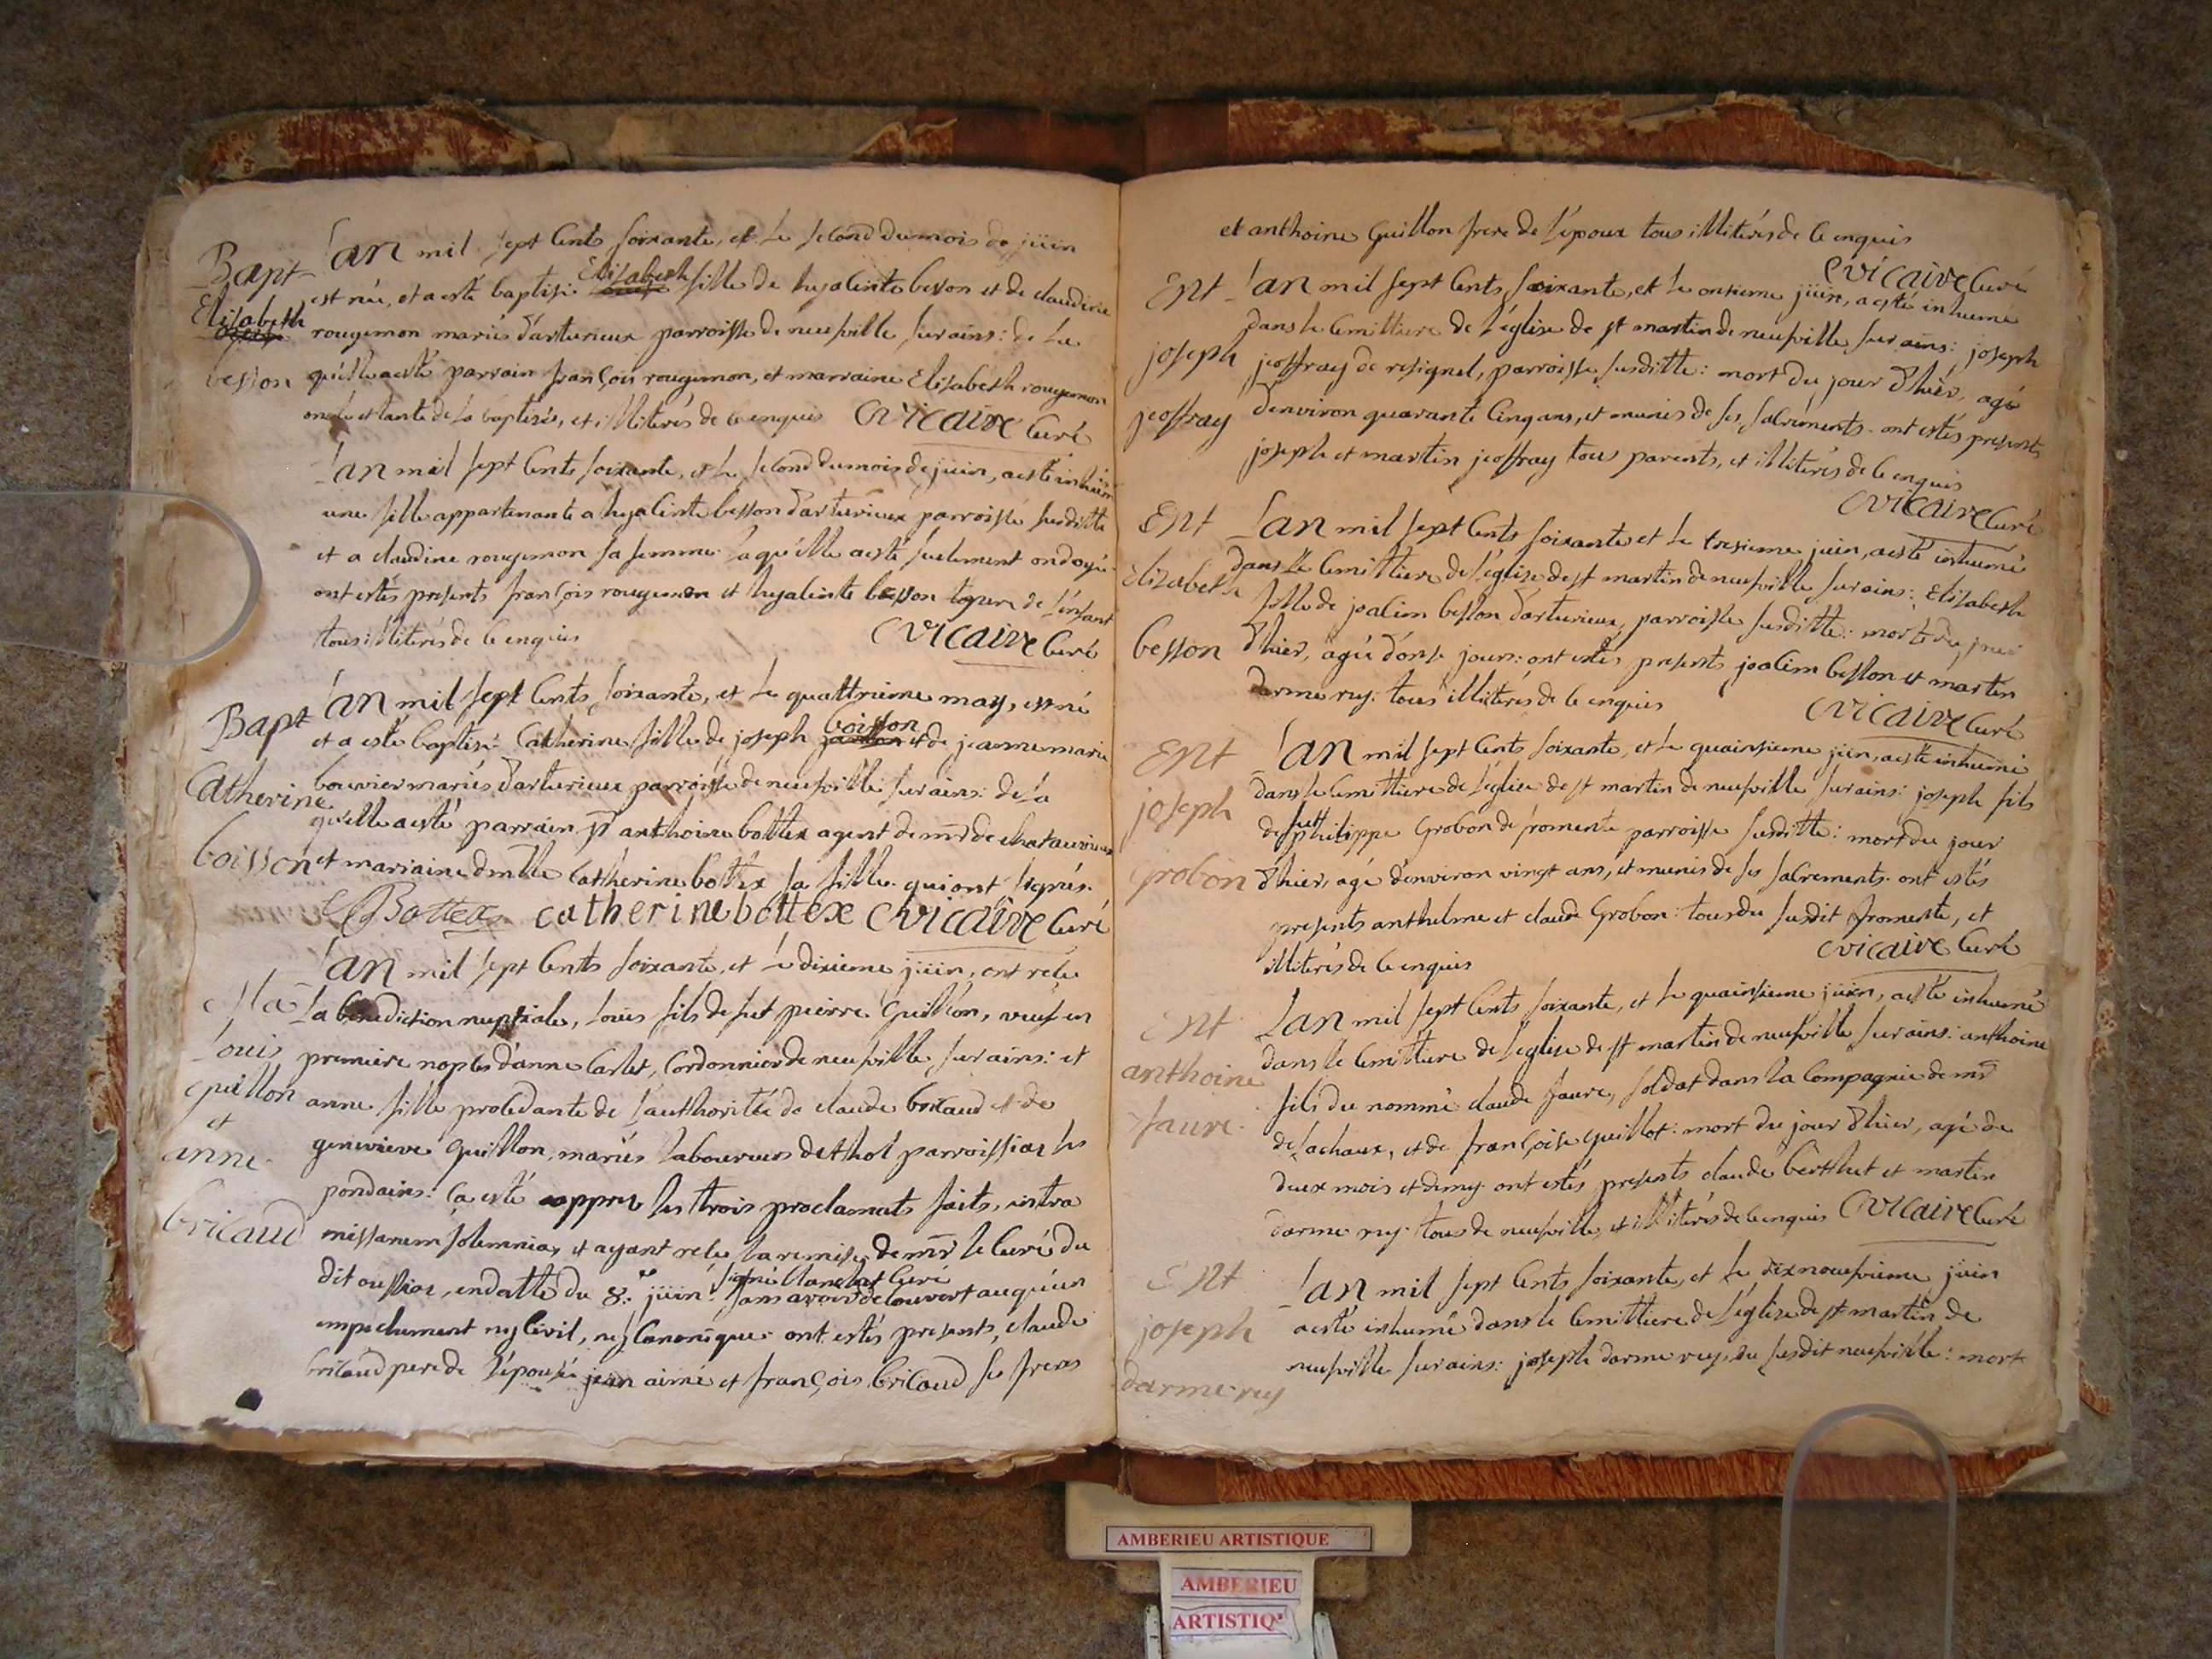 Bapt
Elizabeth
besson
Lan mil sept Cents soixante, et le second du mois de jüin
est née, et a esté baptisé Elizabeth fille de hyacinte besson et de claudine
rougemon mariés d'arturieux parroisse de neufville sur ains: de la
quélle a esté parrain françois rougemon, et marraine Elizabeth rougemon
oncle et tante de la baptisée, et illiterés de ce enquis CVICAIRE Curé
Lan mil sept Cents soixante, et le second du mois de juin, a esté inhumé
une fille appartenante a hyacinte besson d'arturieux parroisse susditte
et a claudine rougemon sa femme laquélle a esté seulement ondoyé
ont estés presents françois rougemon et hyacinte besson le pere de l'enfant
tous illiterés de ce enquis CVICAIRE Curé
Bapt
Catherine
boisson
Lan mil sept Cents soixante, et le quattrieme may, est né
et a esté baptisé Catherine fille de joseph boisson et de jeanne marie
bouvier mariés d'arturieux parroisse de neufville sur ains: de la
quélle a esté parrain sr anthoine bottex agent de mr de chatauvieux
et marraine dmlle Catherine bottex sa fille qui ont signés.
Bottex catherine bottex CVICAIRE Curé
Ma
Louis
guillon
et
anne
bricaud
Lan mil sept Cents soixante, et le dixieme jüin, ont relu
la benediction nuptiale, Louis fils de fut pierre Guillon, veuf en
premiere nopces d'anne Carlet, Cordonnier de neufville sur ains: et
anne fille procedante de l'authoritée de claude bricaud et de
genevieve Guillon, mariés laboureurs de thol parroissiar les
pondains: Ca esté appres les trois proclamats faits, intra
missarum solemnia, et ayant relu la remise de mr le Curé du
dit oussiar, en datte du 8e juin signé Blanchet Curé sans avoir decouvert auqu'un
empechement ny Civil, ny Canonique ont estés presents, claude
bricaud pere de l'épousé jean aimé et françois bricaud ses freres
et anthoine Guillon frere de l'époux tous illiterés de ce enquis
CVICAIRE Curé
Ent
joseph
jeoffray
Lan mil sept Cents soixante, et le onsieme jüin, a esté inhumé
dans le Cemittiere de l'église de st martin de neufville sur ains: joseph
jeoffray de resignel, parroisse susditte: mort du jour d'hier, agé
d'environ quarante Cinq ans, et munis de ses sacrements. ont estés presents
joseph et martin jeoffray tous parents, et illiterés de ce enquis
CVICAIRE Curé
Ent
Elizabeth
besson
Lan mil sept Cents soixante et le tresieme juin, a esté inhumé
dans le Cemittiere de l'église de st martin de neufville sur ains: Elizabeth
fille de joacim besson d'arturieux, parroisse susditte: morte du jour
d'hier, agée d'onse jours: ont estés presents joacim besson et martin
darmeruy. tous illiterés de ce enquis
CVICAIRE Curé
Ent
joseph
Grobon
Lan mil sept Cents soixante, et le quainsieme juin, a esté inhumé
dans le Cemittiere de l'église de st martin de neufville sur ains: joseph fils
de fut philippe Grobon de fromente parroisse susditte: mort du jour
d'hier, agé d'environ vingt ans, et munis de ses sacrements. ont estés
presents anthelme et claude Grobon: tous du susdit fromente, et
illiterés de ce enquis CVICAIRE Curé
Ent
anthoine
faure
Lan mil sept Cents soixante, et le quainsieme jüin, a esté inhumé
dans le Cemittiere de l'église de st martin de neufville sur ains: anthoine
fils du nommé claude faure, soldat dans la Compagnie de mr
de lachaux, et de françoise guillot: mort du jour d'hier, agé de
deux mois et demy. ont estés presents claude berthet et martin
darmeruy. tous de neufville, et illiterés de ce enquis CVICAIRE Curé
Ent
joseph
darmeruy
Lan mil sept Cents soixante, et le dixneufvieme juin
a esté inhumé dans le Cemittiere de l'église de st martin de
neufville sur ains: joseph darmeruy, du susdit neufville: mort
AMBERIEU ARTISTIQUE
AMBERIEU
ARTISTIQ